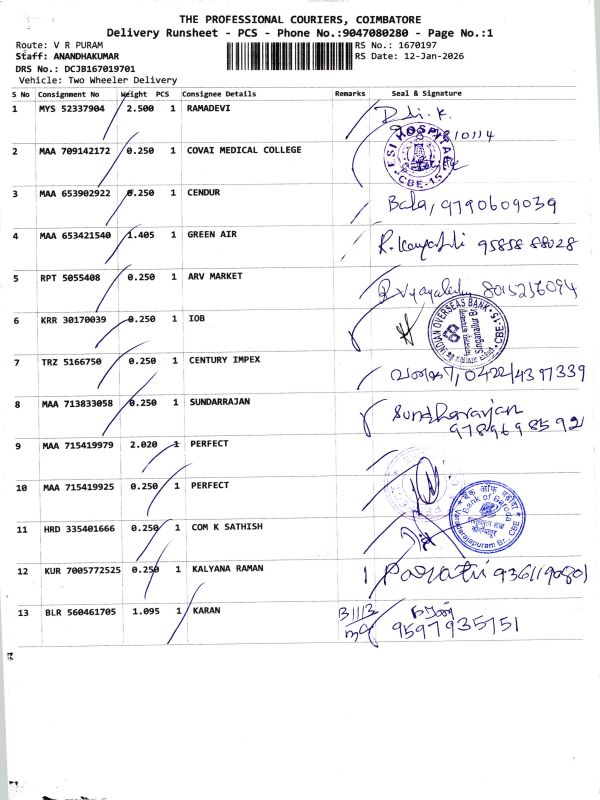 THE PROFESSIONAL COURIERS, COIMBATORE
Delivery Runsheet - PCS - Phone No.:9047080280 - Page No.:1
Route: V R PURAM
RS No.: 1670197
Staff: ANANDHAKUMAR
RS Date: 12-Jan-2026
DRS No.: DCJB167019701
Vehicle: Two Wheeler Delivery
S No Consignment No Weight PCS Consignee Details Remarks Seal & Signature
1 MYS 52337904 2.500 1 RAMADEVI
2 MAA 709142172 0.250 1 COVAI MEDICAL COLLEGE
ESI HOSPITAL
CBE-15
3 MAA 653902922 0.250 1 CENDUR Bala, 9790609039
4 MAA 653421540 1.405 1 GREEN AIR 95858 88028
5 RPT 5055408 0.250 1 ARV MARKET 8015216094
6 KRR 30170039 0.250 1 IOB
INDIAN OVERSEAS BANK
Singanallur Br.
CBE-15
7 TRZ 5166750 0.250 1 CENTURY IMPEX 0422/4397339
8 MAA 713833058 0.250 1 SUNDARRAJAN Sundhararajan
9789698592
9 MAA 715419979 2.020 1 PERFECT
10 MAA 715419925 0.250 1 PERFECT
बैंक ऑफ़ बड़ौदा
Bank of Baroda
Varadarajapuram Br., CBE
11 HRD 335401666 0.250 1 COM K SATHISH
12 KUR 7005772525 0.250 1 KALYANA RAMAN 9361190801
13 BLR 560461705 1.095 1 KARAN
9597935751